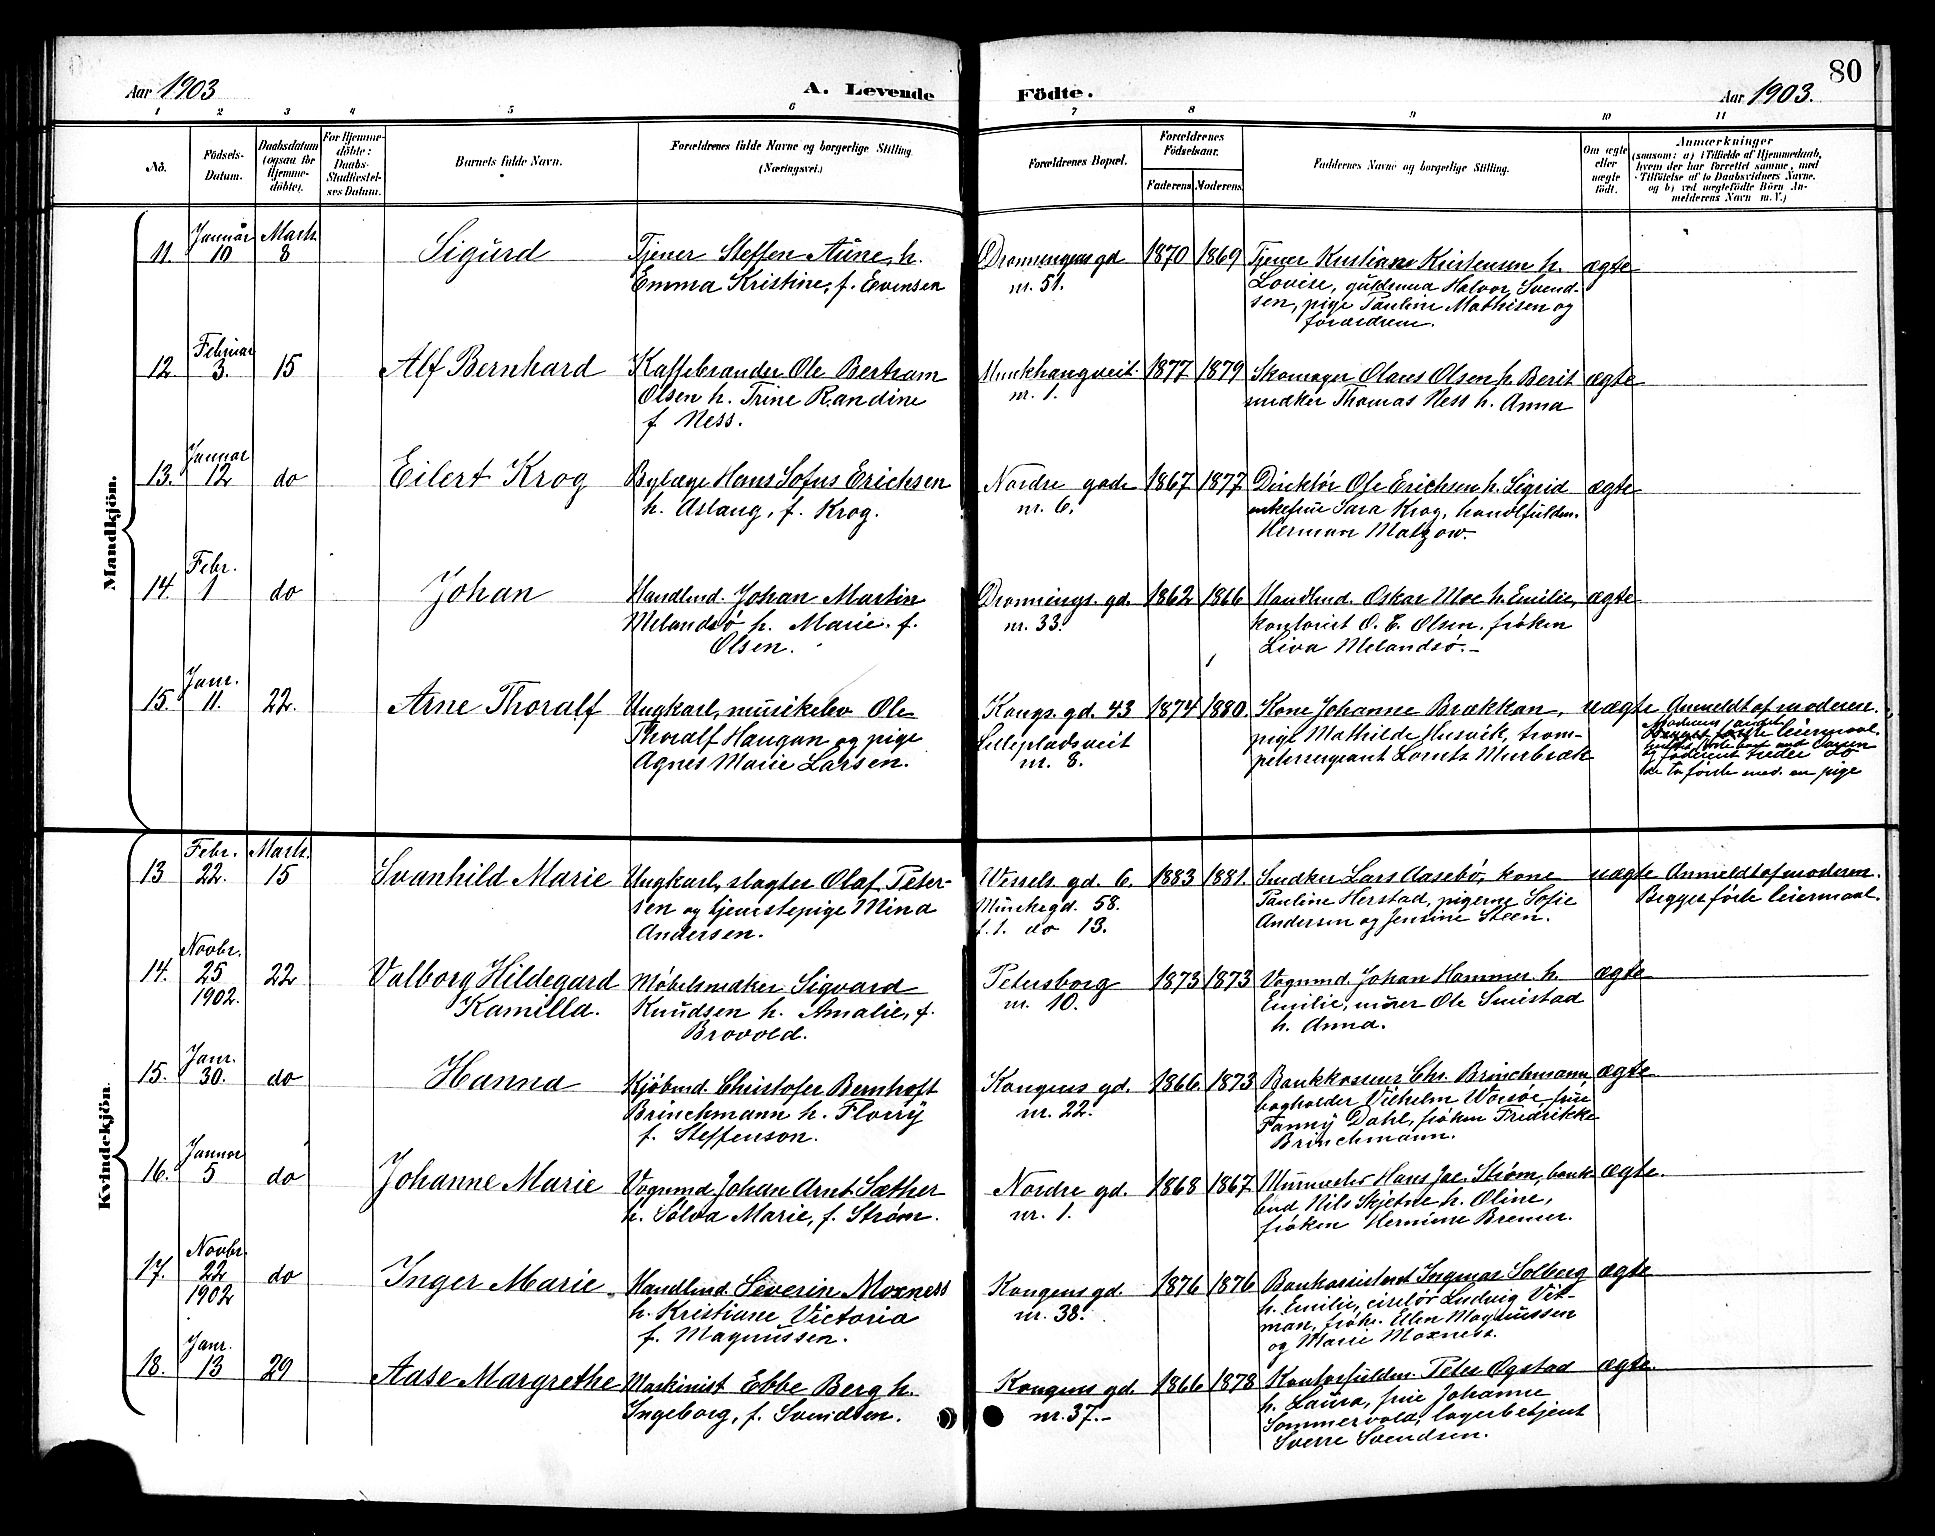 80
Aar 1903
A. Levende
Födte.
Aar 1903.
1 2 3 4 5 6 7 8 9 10 11
Nö.
Födsels-
Datum.
Daabsdatum
(ogsaa for
Hjemme-
döbte).
For Hjemme-
döbte:
Daabs-
Stadfæstel-
ses Datum.
Barnets fulde Navn.
Forældrenes fulde Navne og borgerlige Stilling
(Næringsvei.)
Forældrenes Bopæl.
Forældrenes
Födselsaar.
Faderens Moderens
Faddernes Navne og borgerlige Stilling.
Om ægte
eller
uægte
födt.
Anmærkninger
(saasom: a) i Tilfælde af Hjemmedaab,
hvem der har forrettet samme, med
Tilföielse af to Daabsvidners Navne,
og b) ved uægtefödte Börn An-
melderens Navn m. V.)
Mandkjön.
11. Januar 10 Marts 8
Sigurd
Tjener Steffen Aune, h.
Emma Kristine, f. Evensen
Dronningens gd
nr. 51.
1870 1869
Tjener Kristian Kristensen h.
Lovise, guldsmed Halvor Svend-
sen, pige Pauline Mathisen og
forældrene.
ægte
12. Februar 3. 15
Alf Bernhard
Kaffebrænder Ole Bertram
Olsen h. Trine Randine
f. Ness.
Munkhaugveit.
nr. 1.
1877 1879
Skomager Olaus Olsen h. Berit
snedker Thomas Ness h. Anna
ægte
13. Januar 12 do
Eilert Krog
Bylæge Hans Sofus Erichsen
h. Aslaug, f. Krog.
Nordre gade
nr. 6.
1867 1877
Direktör Ole Erichsen h. Sigrid
enkefrue Sara Krog, handlfuldm.
Herman Matzow.
ægte
14. Febr. 1 do
Johan
Handlend. Johan Martin
Melandsø h. Marie. f.
Olsen.
Dronnings. gd.
nr. 33.
1862 1866
Handlend. Oskar Moe h. Emilie,
kontorist O. E. Olsen, frøken
Liva Melandsø.
ægte
15. Janr. 11. 22.
Arne Thoralf
Ungkarl, musikelev Ole
Thoralf Haugan og pige
Agnes Marie Larsen.
Kongs. gd. 43
Lillepladsveit
nr. 8.
1874 1880
Kone Johanne Brækkan,
pige Mathilde Husvik, trom-
petersergeant Lorntz Murbræk
uægte
Anmeldt af moderen.
de to første med en pige
Kvindekjön.
13 Febr. 22. Marts. 15
Svanhild Marie
Ungkarl, slagter Olaf Peter-
sen og tjenestepige Mina
Andersen.
Wessels gd. 6.
Munkegd. 58.
f. t. do 13.
1883 1881.
Snedker Lars Aasebø, kone
Pauline Herstad, pigerne Sofie
Andersen og Jensine Steen.
uægte
Anmeldt af moderen.
Begges første leiermaal.
14. Novbr. 25 1902. 22
Valborg Hildegard
Kamilla.
Møbelsnedker Sigvard
Knudsen h. Amalie, f.
Brovold.
Petersborg
nr. 10.
1873 1873
Vognmd. Johan Hammer h.
Emilie, murer Ole Smistad
h. Anna.
ægte
15. Janr. 30. do
Hanna
Kjøbmd. Christofer Bernhoft
Brinchmann h. Florry
f. Steffenson.
Kongens gd.
nr. 22.
1866 1873
Bankkasserer Chr. Brinchmann
bogholder Vilhelm Worsøe, frue
Fanny Dahl, frøken Fredrikke
Brinchmann.
ægte
16. Januar 5 do
Johanne Marie
Vognmd Johan Arnt Sæther
h. Sølva Marie, f. Strøm.
Nordre gd.
nr. 1.
1868 1867
Murmester Hans Jac. Strøm, bank-
bud Nils Skjetne h. Oline,
frøken Hermine Bremer.
ægte.
17. Novbr. 22 1902 do
Inger Marie
Handlend. Severin Moxness
h. Kristiane Victoria
f. Magnussen.
Kongens gd.
nr. 38.
1876 1876
Bankassistent Ingmar Solberg
h. Emilie, ciselør Ludvig Vit-
man, frøkn. Ellen Magnussen
og Marie Moxness.
ægte
18. Janr. 13 29
Aase Margrethe
Maskinist Ebbe Berg h.
Ingeborg, f. Svendsen.
Kongens gd.
nr. 37.
1866 1878
Kontorfuldm. Peter Øgstad
h. Laura, frue Johanne
Sommervold, lagerbetjent
Sverre Svendsen.
ægte.